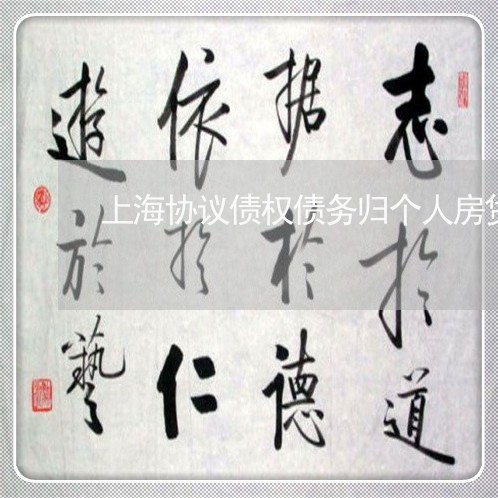 志於道
据於德
依於仁
遊於藝
上海协议债权债务归个人房